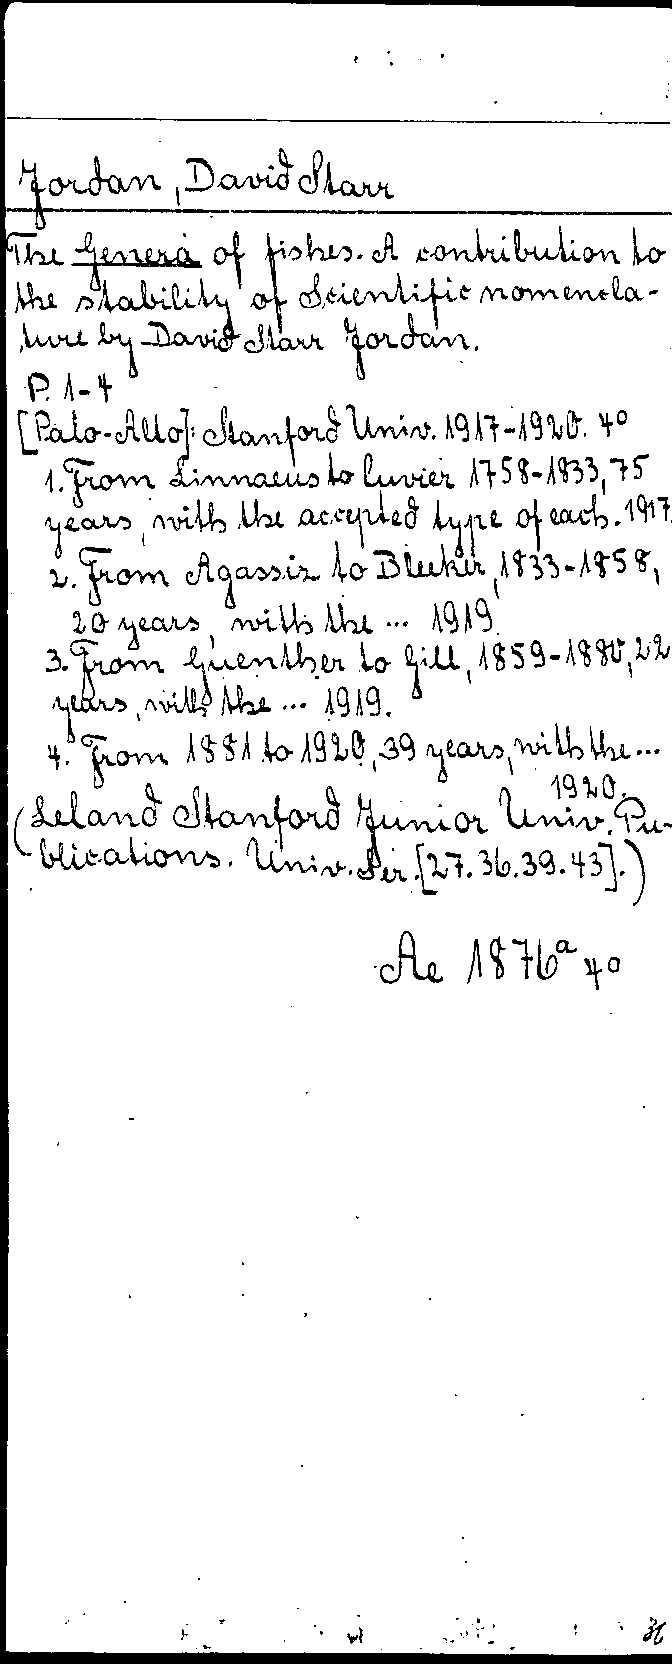 Jordan, David Starr
The Genera of fishes. A contribution to
the stability of scientific nomencla-
ture by David Starr Jordan.
P. 1-4
[Palo-Alto]: Stanford Univ. 1917-1920. 4°
1. From Linnaeus to Cuvier 1758-1833, 75
years, with the accepted type of each. 1917
2. From Agassiz to Bleeker, 1833-1858,
20 years, with the ... 1919.
3. From Guenther to Gill, 1859-1880, 22
years, with the ... 1919.
4. From 1881 to 1920, 39 years, with the ...
1920.
(Leland Stanford Junior Univ. Pu-
blications. Univ. Ser. [27.36.39.43].)
Ae 1876ª 4°